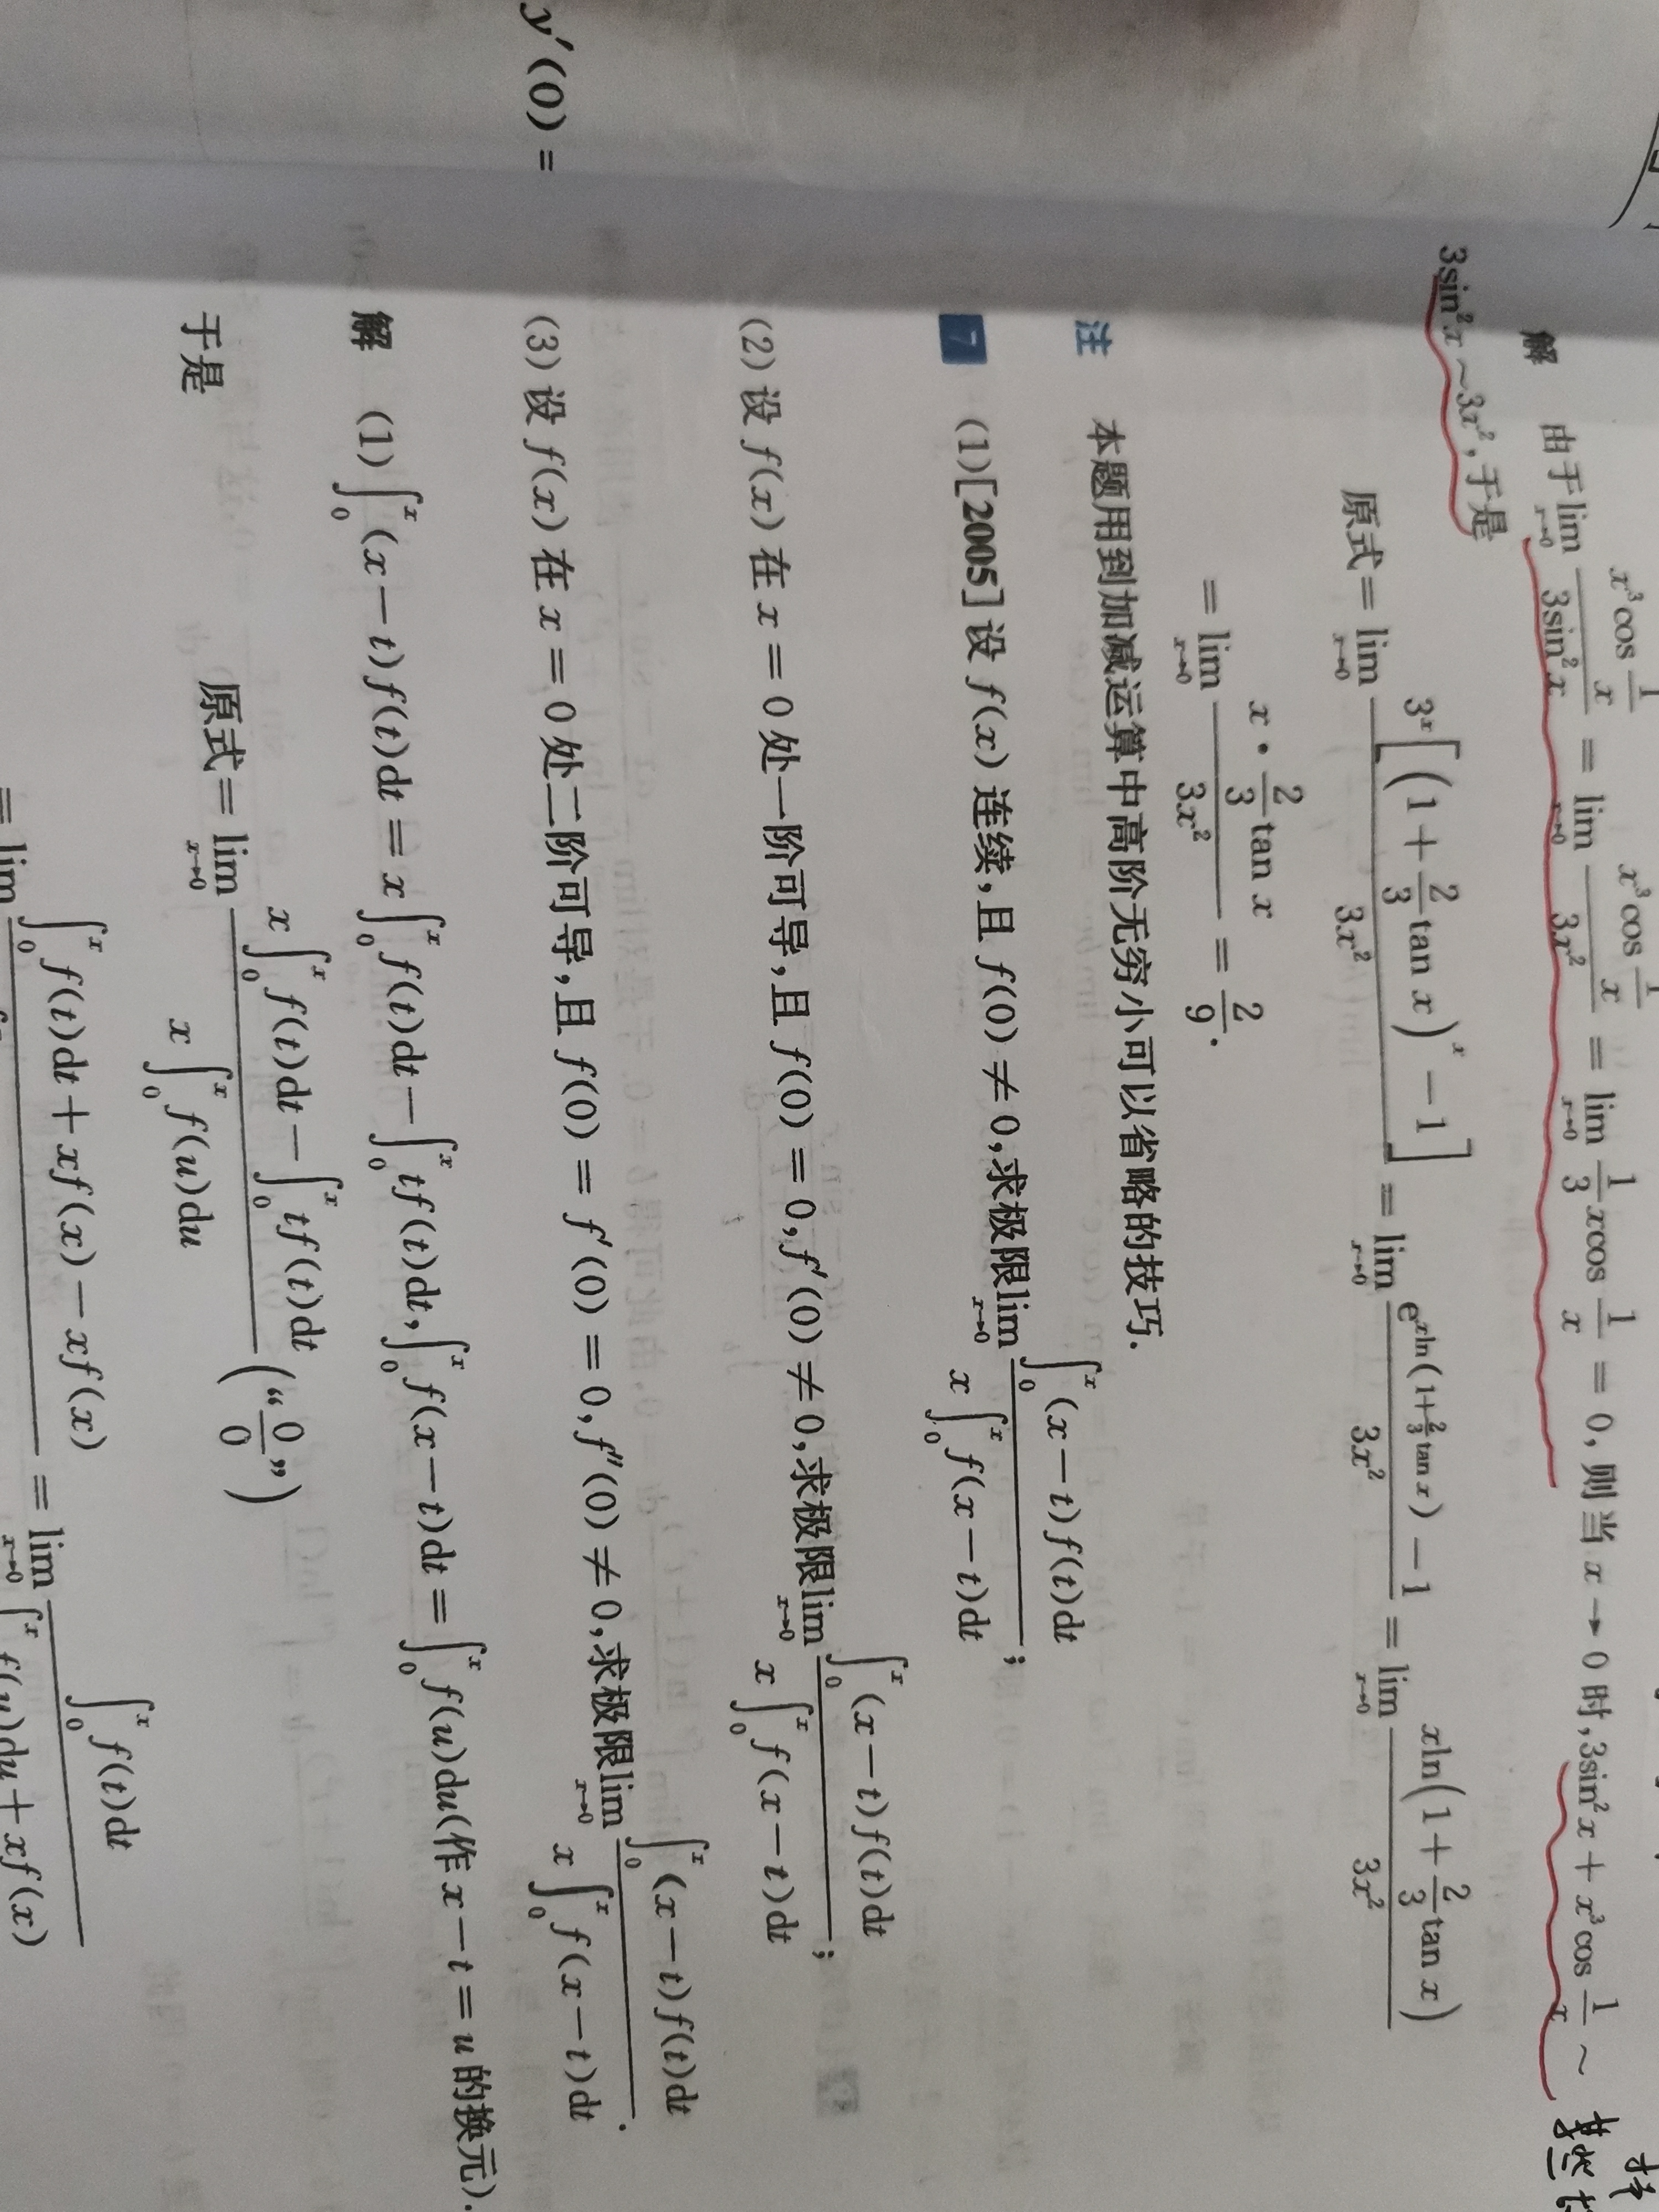 y′(0) =
解 由于 lim_{x→0} (x³cos(1/x))/(3sin²x) = lim_{x→0} (x³cos(1/x))/(3x²) = lim_{x→0} (1/3)xcos(1/x) = 0, 则当 x → 0 时, 3sin²x + x³cos(1/x) ~
3sin²x ~ 3x², 于是
原式 = lim_{x→0} (3ˣ[(1 + (2/3)tan x)ˣ − 1])/(3x²) = lim_{x→0} (e^{xln(1+(2/3)tan x)} − 1)/(3x²) = lim_{x→0} (xln(1 + (2/3)tan x))/(3x²)
= lim_{x→0} (x · (2/3)tan x)/(3x²) = 2/9.
注 本题用到加减运算中高阶无穷小可以省略的技巧.
7 (1)[2005]设 f(x) 连续,且 f(0) ≠ 0,求极限 lim_{x→0} (∫₀ˣ(x − t)f(t)dt)/(x∫₀ˣ f(x − t)dt);
(2) 设 f(x) 在 x = 0 处一阶可导,且 f(0) = 0, f′(0) ≠ 0,求极限 lim_{x→0} (∫₀ˣ(x − t)f(t)dt)/(x∫₀ˣ f(x − t)dt);
(3) 设 f(x) 在 x = 0 处二阶可导,且 f(0) = f′(0) = 0, f″(0) ≠ 0,求极限 lim_{x→0} (∫₀ˣ(x − t)f(t)dt)/(x∫₀ˣ f(x − t)dt).
解 (1) ∫₀ˣ(x − t)f(t)dt = x∫₀ˣ f(t)dt − ∫₀ˣ tf(t)dt, ∫₀ˣ f(x − t)dt = ∫₀ˣ f(u)du(作 x − t = u 的换元).
于是 原式 = lim_{x→0} (x∫₀ˣ f(t)dt − ∫₀ˣ tf(t)dt)/(x∫₀ˣ f(u)du) (“0/0”)
= lim ∫₀ˣ f(t)dt + xf(x) − xf(x) = lim_{x→0} (∫₀ˣ f(t)dt)/(∫₀ˣ f(u)du + xf(x))